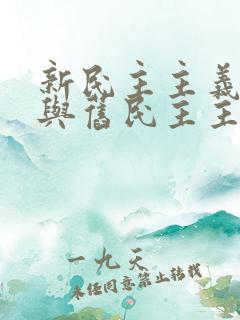 新民主主義
與舊民主主
一九天
未经同意禁止转载